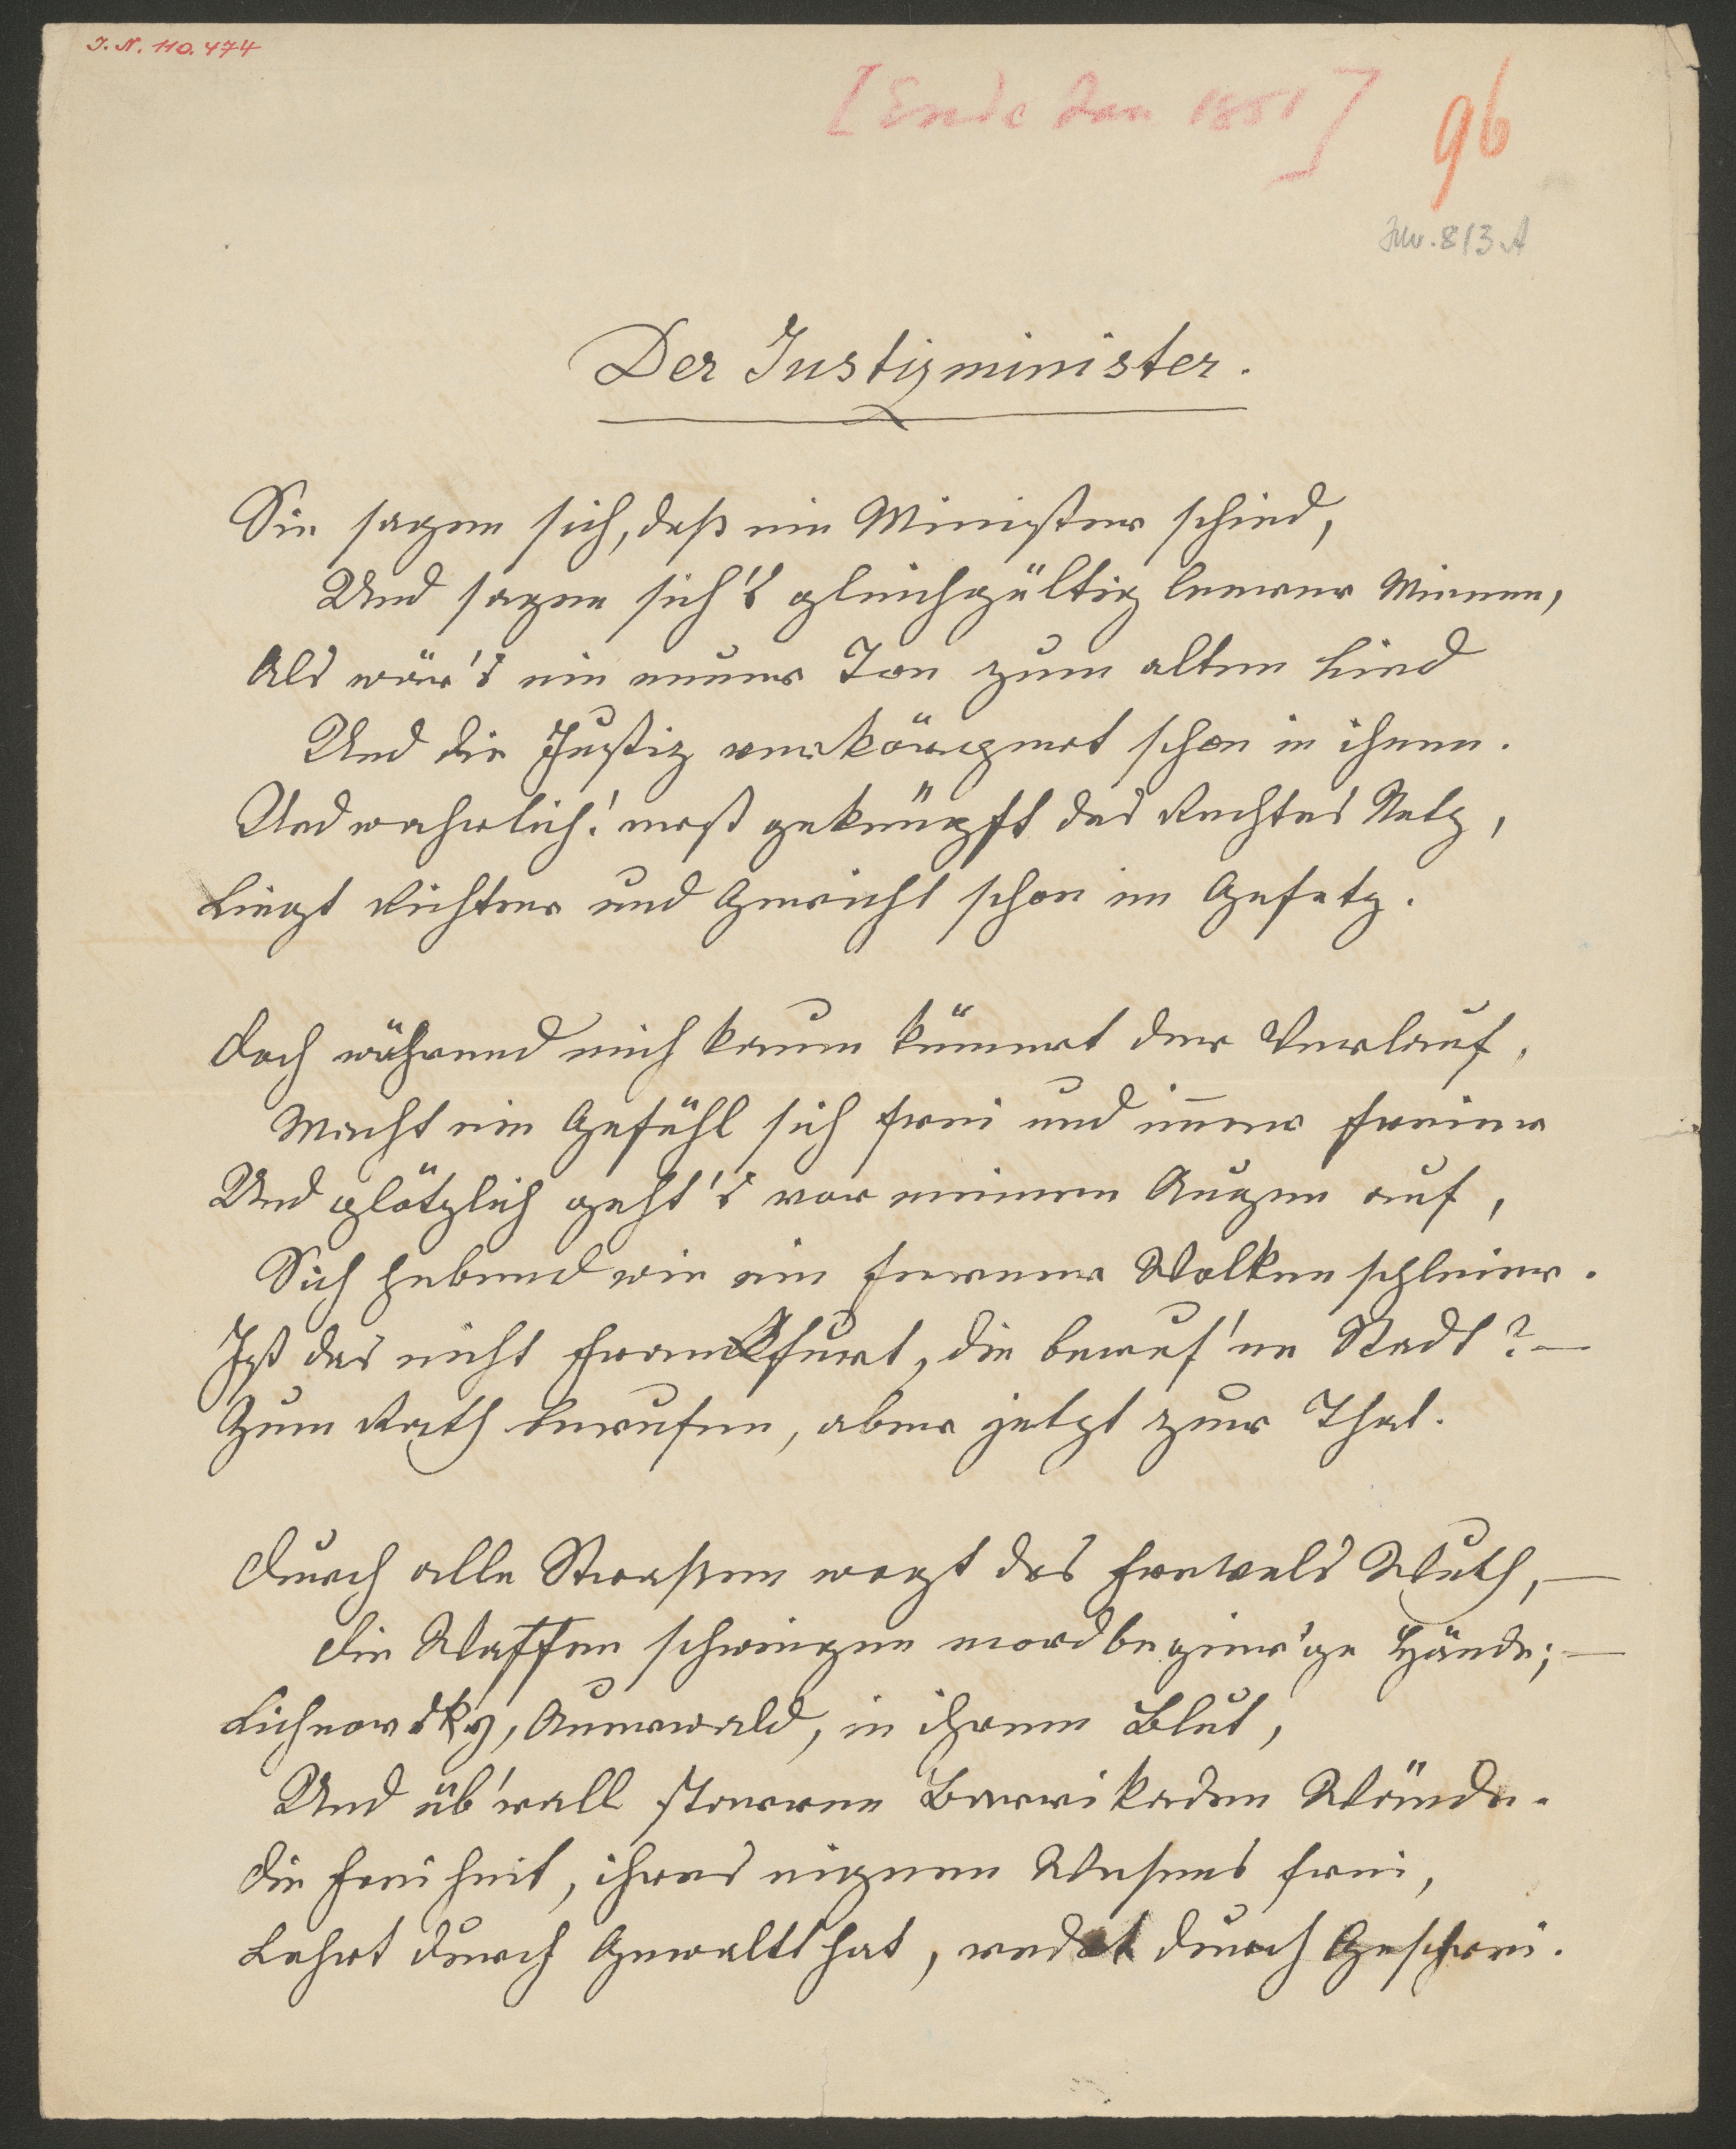 I. N. 110.474
[Ende Jan 1851]
96
Inv. 813 A
Der Justizminister.
Sie sagen sich, daß ein Minister schied,
Und sagen sich's gleichgültig leerer Mienen,
Als wär's ein neuer Ton zum alten Lied
Und die Justiz verkörpert schon in ihnen.
Und wahrlich! erst geknüpft des Rechtes Netz,
Liegt Richter und Gericht schon im Gesetz.
Doch während mich kaum kümert der Verlauf,
Macht ein Gefühl sich frei und im̄er freier
Und plötzlich geht's vor meinen Augen auf,
Sich hebend wie ein ferner Wolkenschleier.
Ist das nicht Frankfurt, die beruf'ne Stadt? —
Zum Rath berufen, aber jetzt zur That.
Durch alle Straßen wogt des Frevels Wuth, —
Die Waffen schwingen mordbegier'ge Hände; —
Lichnovsky, Auerswald, in ihrem Blut,
Und üb'rall starren Barrikaden Wände.
Die Freiheit, ihres eignen Wesens frei,
Lehrt durch Gewaltthat, redet durch Geschrei.